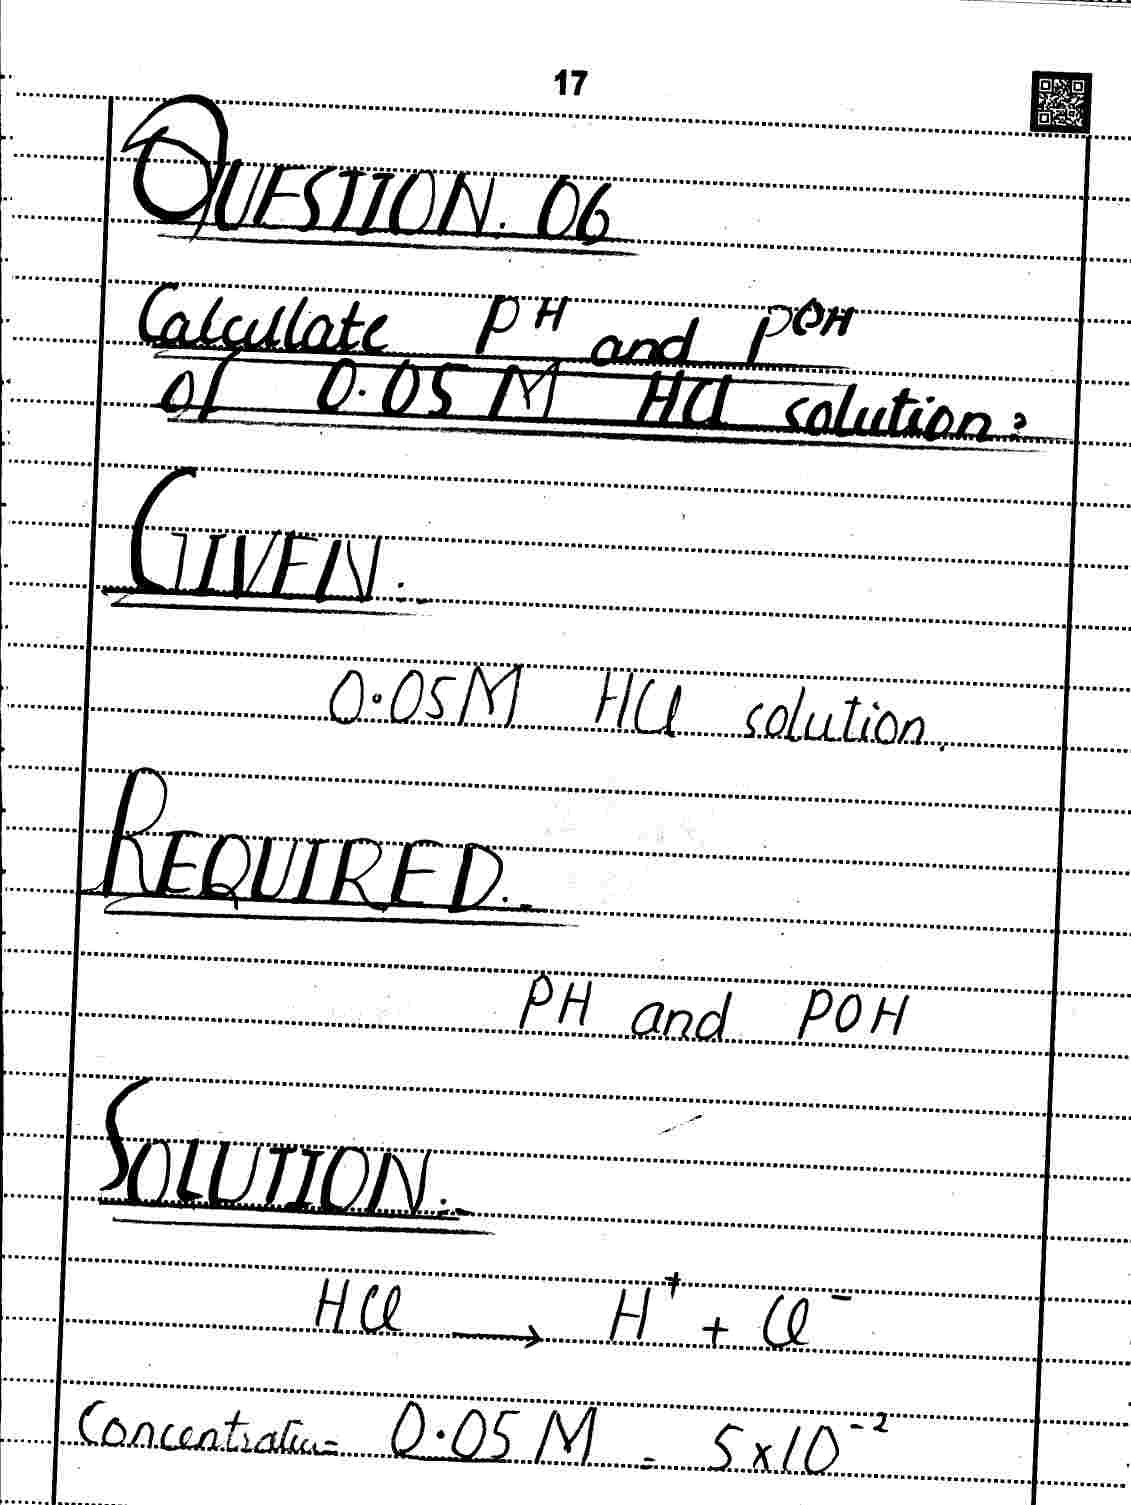 17
QUESTION. 06
Calculate PH and POH
of 0.05 M HCl solution?
GIVEN:-
0.05M HCl solution.
REQUIRED:-
PH and POH
SOLUTION:-
HCl → H⁺ + Cl⁻
Concentration= 0.05 M = 5x10⁻²